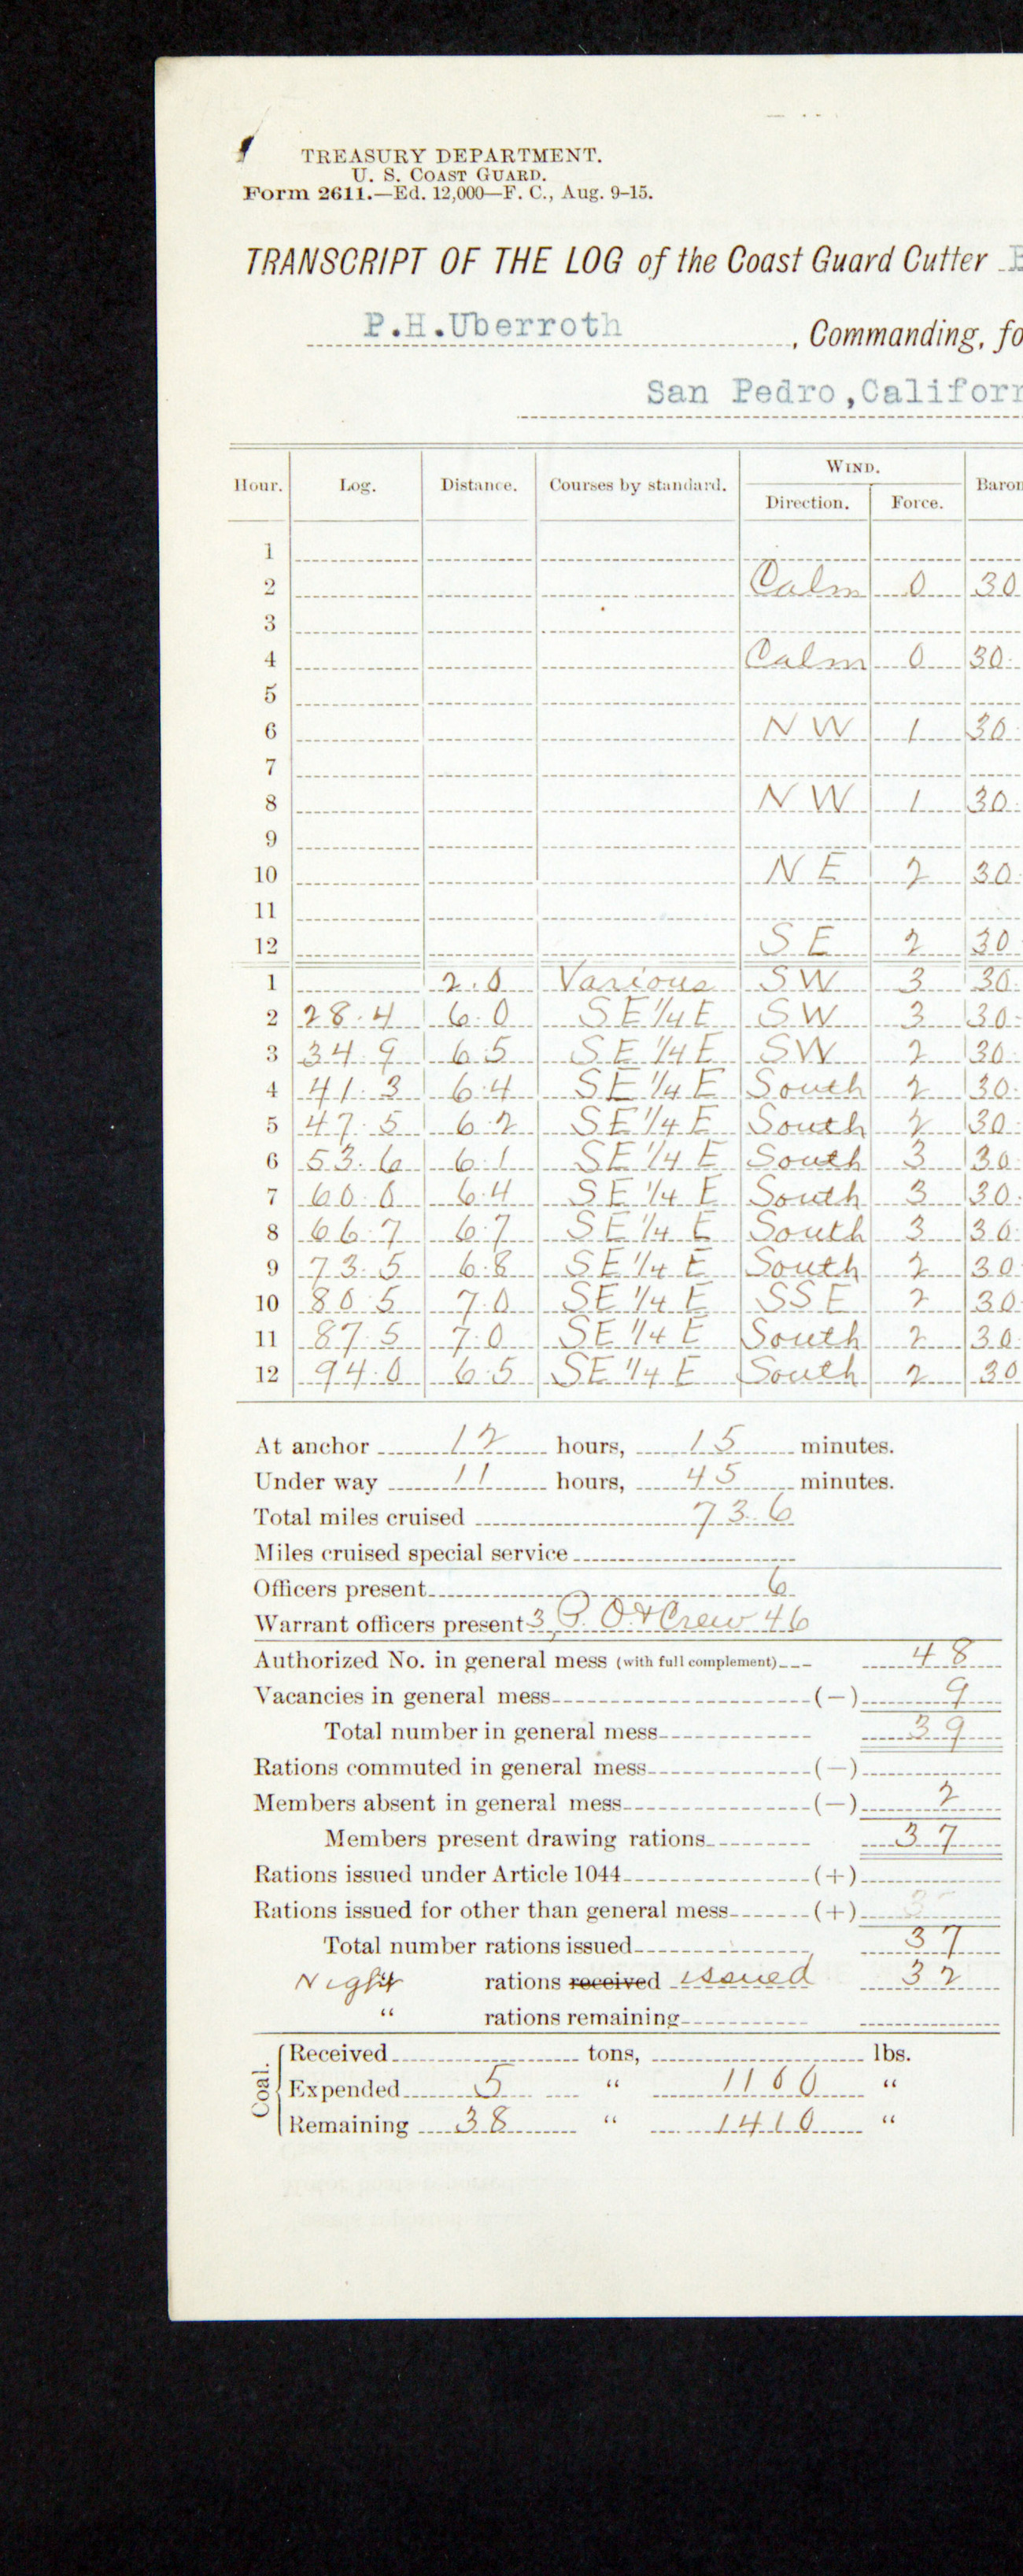 TREASURY DEPARTMENT.
U. S. COAST GUARD.
Form 2611.—Ed. 12,000—F. C., Aug. 9-15.
TRANSCRIPT OF THE LOG of the Coast Guard Cutter
P.H.Uberroth, Commanding, fo
San Pedro, Californ
WIND.
Hour. Log. Distance. Courses by standard. Direction. Force. Baron
1
2 Calm 0 30
3
4 Calm 0 30.
5
6 NW 1 30
7
8 NW 1 30.
9
10 NE 2 30.
11
12 SE 2 30
1 2.0 Various SW 3 30.
2 28.4 6.0 SE 1/4 E SW 3 30.
3 34.9 6.5 SE 1/4 E SW 2 30.
4 41.3 6.4 SE 1/4 E South 2 30.
5 47.5 6.2 SE 1/4 E South 2 30.
6 53.6 6.1 SE 1/4 E South 3 30.
7 60.0 6.4 SE 1/4 E South 3 30.
8 66.7 6.7 SE 1/4 E South 3 30.
9 73.5 6.8 SE 1/4 E South 2 30
10 80.5 7.0 SE 1/4 E SSE 2 30.
11 87.5 7.0 SE 1/4 E South 2 30.
12 94.0 6.5 SE 1/4 E South 2 30
At anchor 12 hours, 15 minutes.
Under way 11 hours, 45 minutes.
Total miles cruised 73.6
Miles cruised special service
Officers present 6
Warrant officers present 3, P.O. & Crew 46
Authorized No. in general mess (with full complement) 48
Vacancies in general mess (—) 9
Total number in general mess 39
Rations commuted in general mess (—)
Members absent in general mess (—) 2
Members present drawing rations 37
Rations issued under Article 1044 (+)
Rations issued for other than general mess (+)
Total number rations issued 37
Night rations received issued 32
" rations remaining
Coal.
Received tons, lbs.
Expended 5 " 1100 "
Remaining 38 " 1410 "